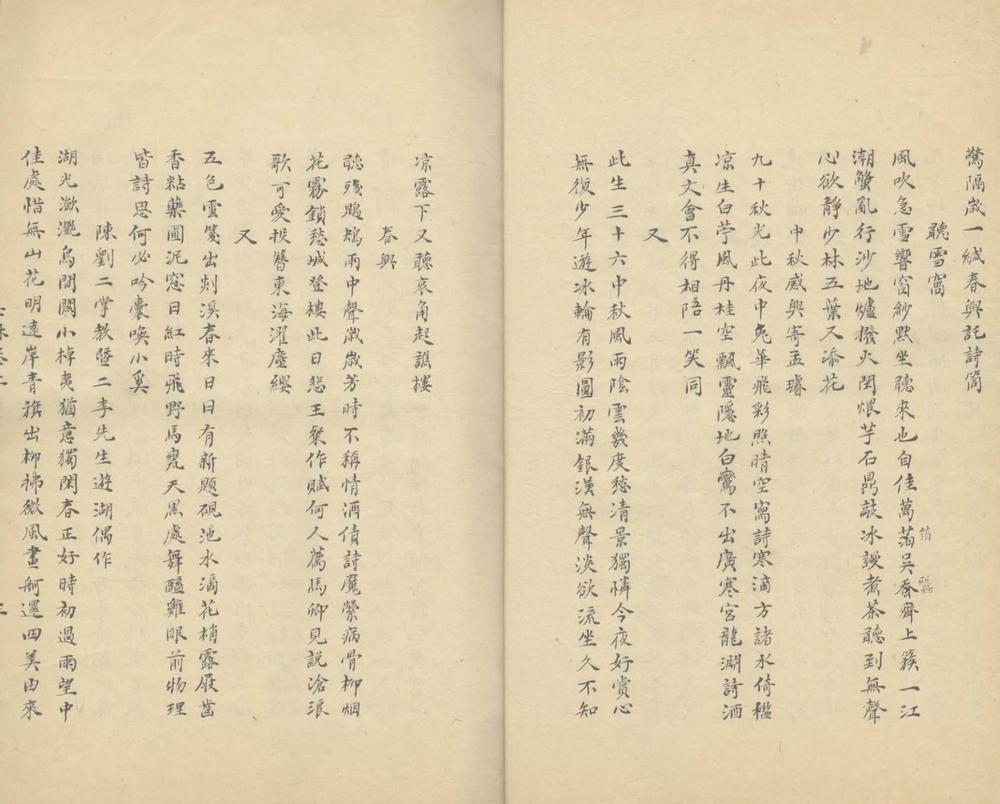 驚隔歲一緘春興託詩筒
聽雪窩
風吹急雪響窗紗默坐聽來也自佳萬蒻吳蚕齊上簇一江
箔
蠶
潮蟹亂行沙地爐撥火閑煨芋石鼎敲冰謾煮茶聽到無聲
心欲靜少林五葉又添花
中秋感興寄孟璿
九十秋光此夜中兔華飛彩照晴空窩詩寒滴方諸水倚檻
凉生白苧風丹桂空飄靈隱地白鸞不出廣寒宮龍澗詩酒
真文會不得相陪一笑同
又
此生三十六中秋風雨陰雲幾度愁清景獨憐今夜好賞心
無復少年遊冰輪有影圓初滿銀漢無聲淡欲流坐久不知
凉露下又聽哀角起譙樓
春興
聽殘鵾鴂雨中聲歲歲芳時不稱情酒債詩魔縈病骨柳烟
花霧鎖愁城登樓此日悲王粲作賦何人薦馬卿見說滄浪
歌可愛投簪東海濯塵纓
又
五色雲箋出剡溪春來日日有新題硯池水滴花梢露屐齒
香粘藥圃泥窓日紅時飛野馬甕天黑處舞醯雞眼前物理
皆詩思何必吟囊喚小奚
陳劉二掌教暨二李先生遊湖偶作
湖光瀲灎鳥間關小棹夷猶意獨閑春正好時初過雨望中
佳處惜無山花明遠岸青旗出柳拂微風畫舸還四美由來
三